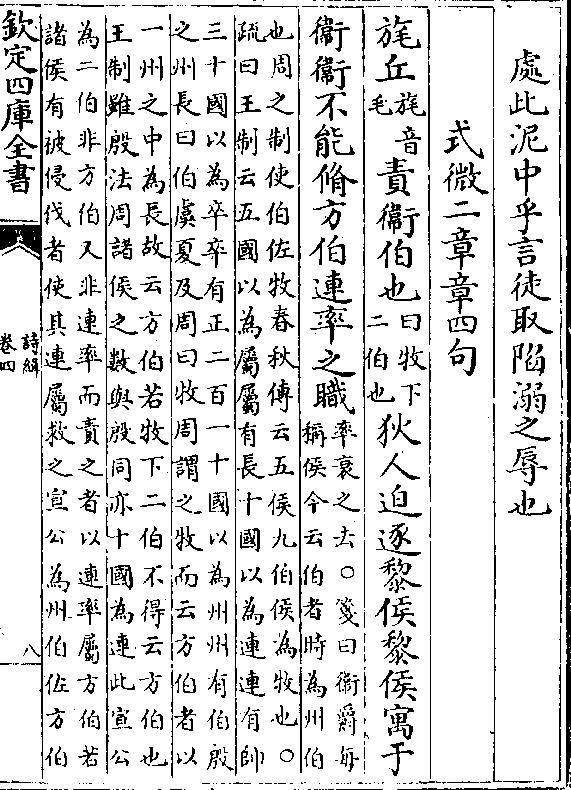 處此泥中乎言徒取陷溺之辱也
式微二章章四句
旄丘旄音毛責衞伯也曰牧下二伯也狄人迫逐黎侯黎侯寓于
衞衞不能脩方伯連率之職率衰之去○箋曰衞爵每稱侯今云伯者時為州伯
也周之制使伯佐牧春秋傳云五侯九伯侯為牧也○
疏曰王制云五國以為屬屬有長十國以為連連有帥
三十國以為卒卒有正二百一十國以為州州有伯殷
之州長曰伯虞夏及周曰牧周謂之牧而云方伯者以
一州之中為長故云方伯若牧下二伯不得云方伯也
王制雖殷法周諸侯之數與殷同亦十國為連此宣公
為二伯非方伯又非連率而責之者以連率屬方伯若
諸侯有被侵伐者使其連屬救之宣公為州伯佐方伯
欽定四庫全書
詩緝
卷四
八